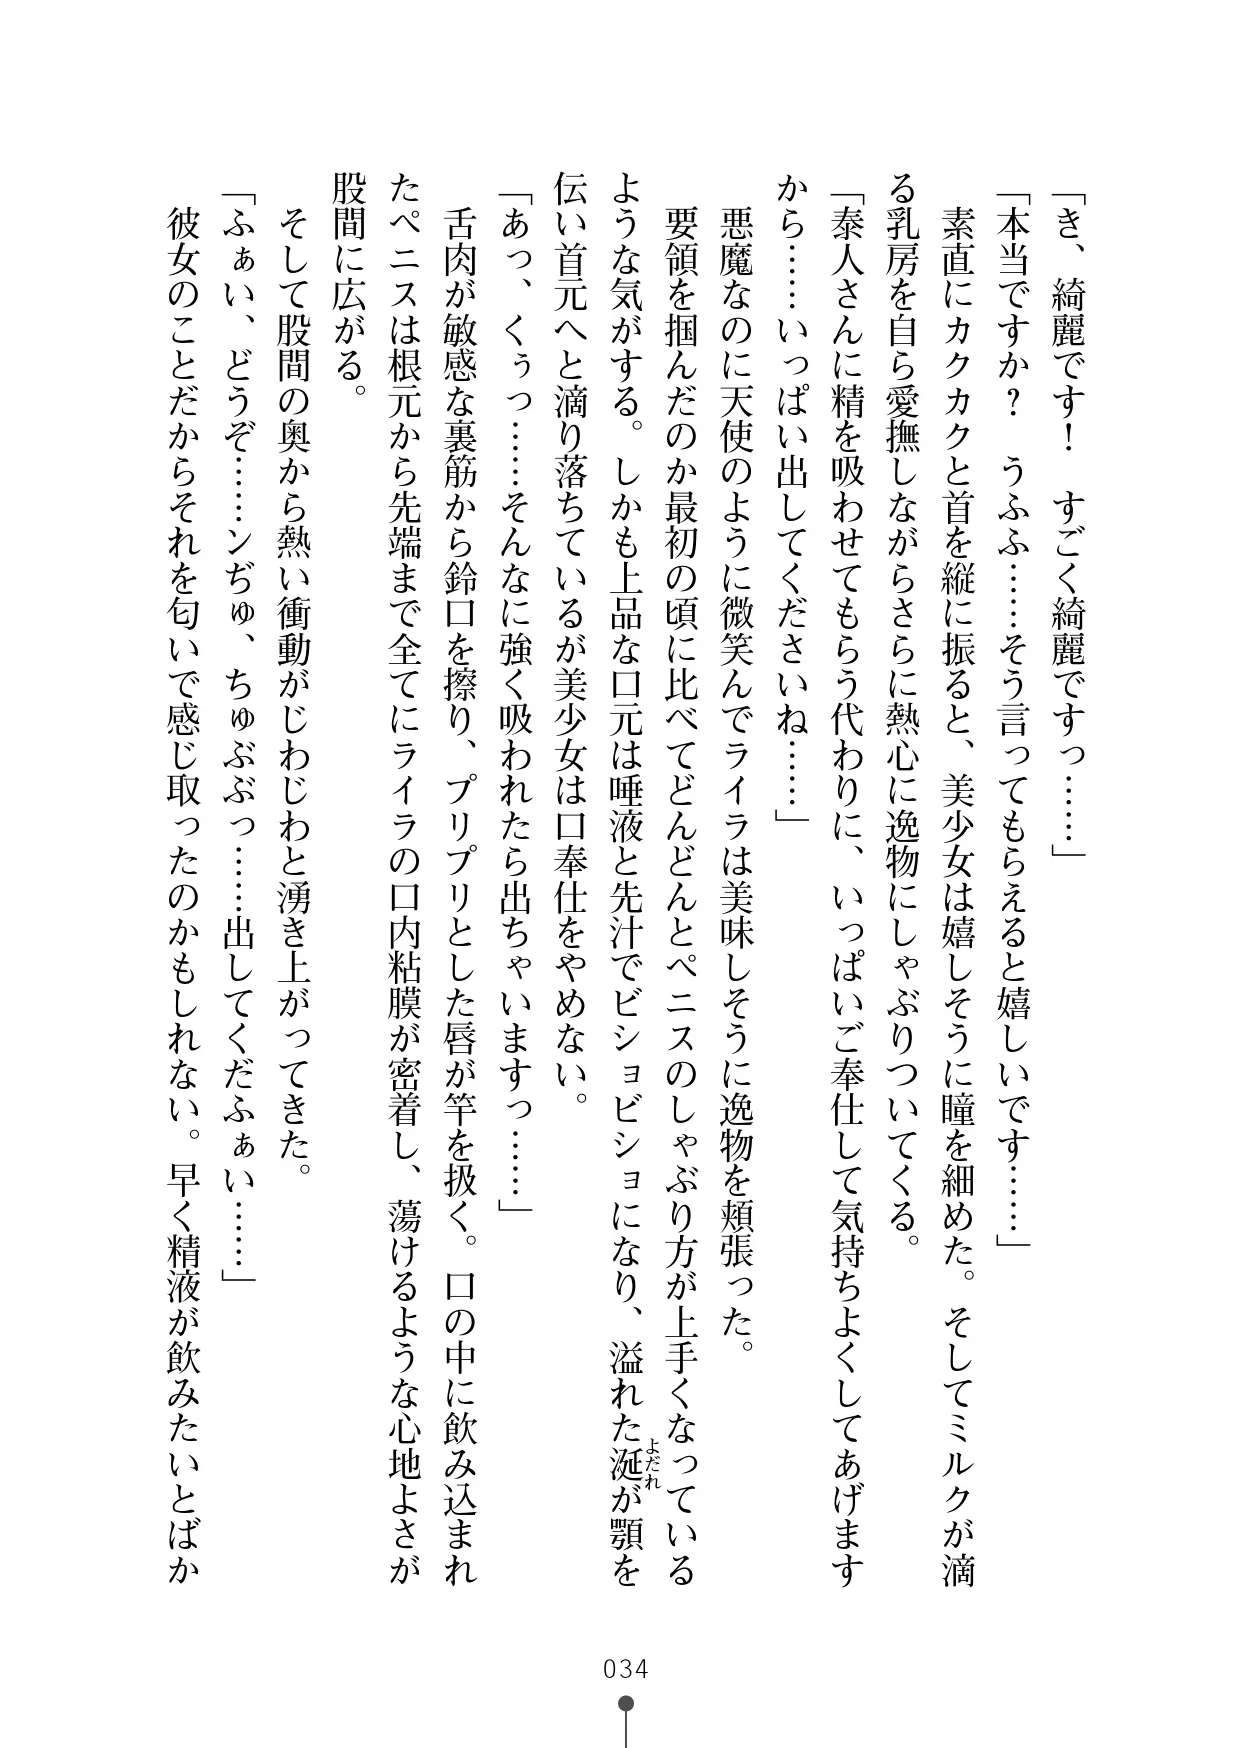 「き、綺麗です！　すごく綺麗ですっ……」
「本当ですか？　うふふ……そう言ってもらえると嬉しいです……」
　素直にカクカクと首を縦に振ると、美少女は嬉しそうに瞳を細めた。そしてミルクが滴
る乳房を自ら愛撫しながらさらに熱心に逸物にしゃぶりついてくる。
「泰人さんに精を吸わせてもらう代わりに、いっぱいご奉仕して気持ちよくしてあげます
から……いっぱい出してくださいね……」
　悪魔なのに天使のように微笑んでライラは美味しそうに逸物を頬張った。
　要領を掴んだのか最初の頃に比べてどんどんとペニスのしゃぶり方が上手くなっている
ような気がする。しかも上品な口元は唾液と先汁でビショビショになり、溢れた涎が顎を
よだれ
伝い首元へと滴り落ちているが美少女は口奉仕をやめない。
「あっ、くぅっ……そんなに強く吸われたら出ちゃいますっ……」
　舌肉が敏感な裏筋から鈴口を擦り、プリプリとした唇が竿を扱く。口の中に飲み込まれ
たペニスは根元から先端まで全てにライラの口内粘膜が密着し、蕩けるような心地よさが
股間に広がる。
　そして股間の奥から熱い衝動がじわじわと湧き上がってきた。
「ふぁい、どうぞ……ンぢゅ、ちゅぶぶっ……出してくだふぁい……」
　彼女のことだからそれを匂いで感じ取ったのかもしれない。早く精液が飲みたいとばか
034